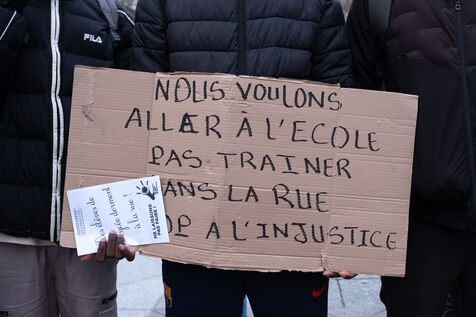 FILA
NOUS VOULONS
ALLER À L'ÉCOLE
PAS TRAINER
ANS LA RUE
OP A L'INJUSTICE
dorment
à la rue !
NE LAISSONS
PAS FAIRE !